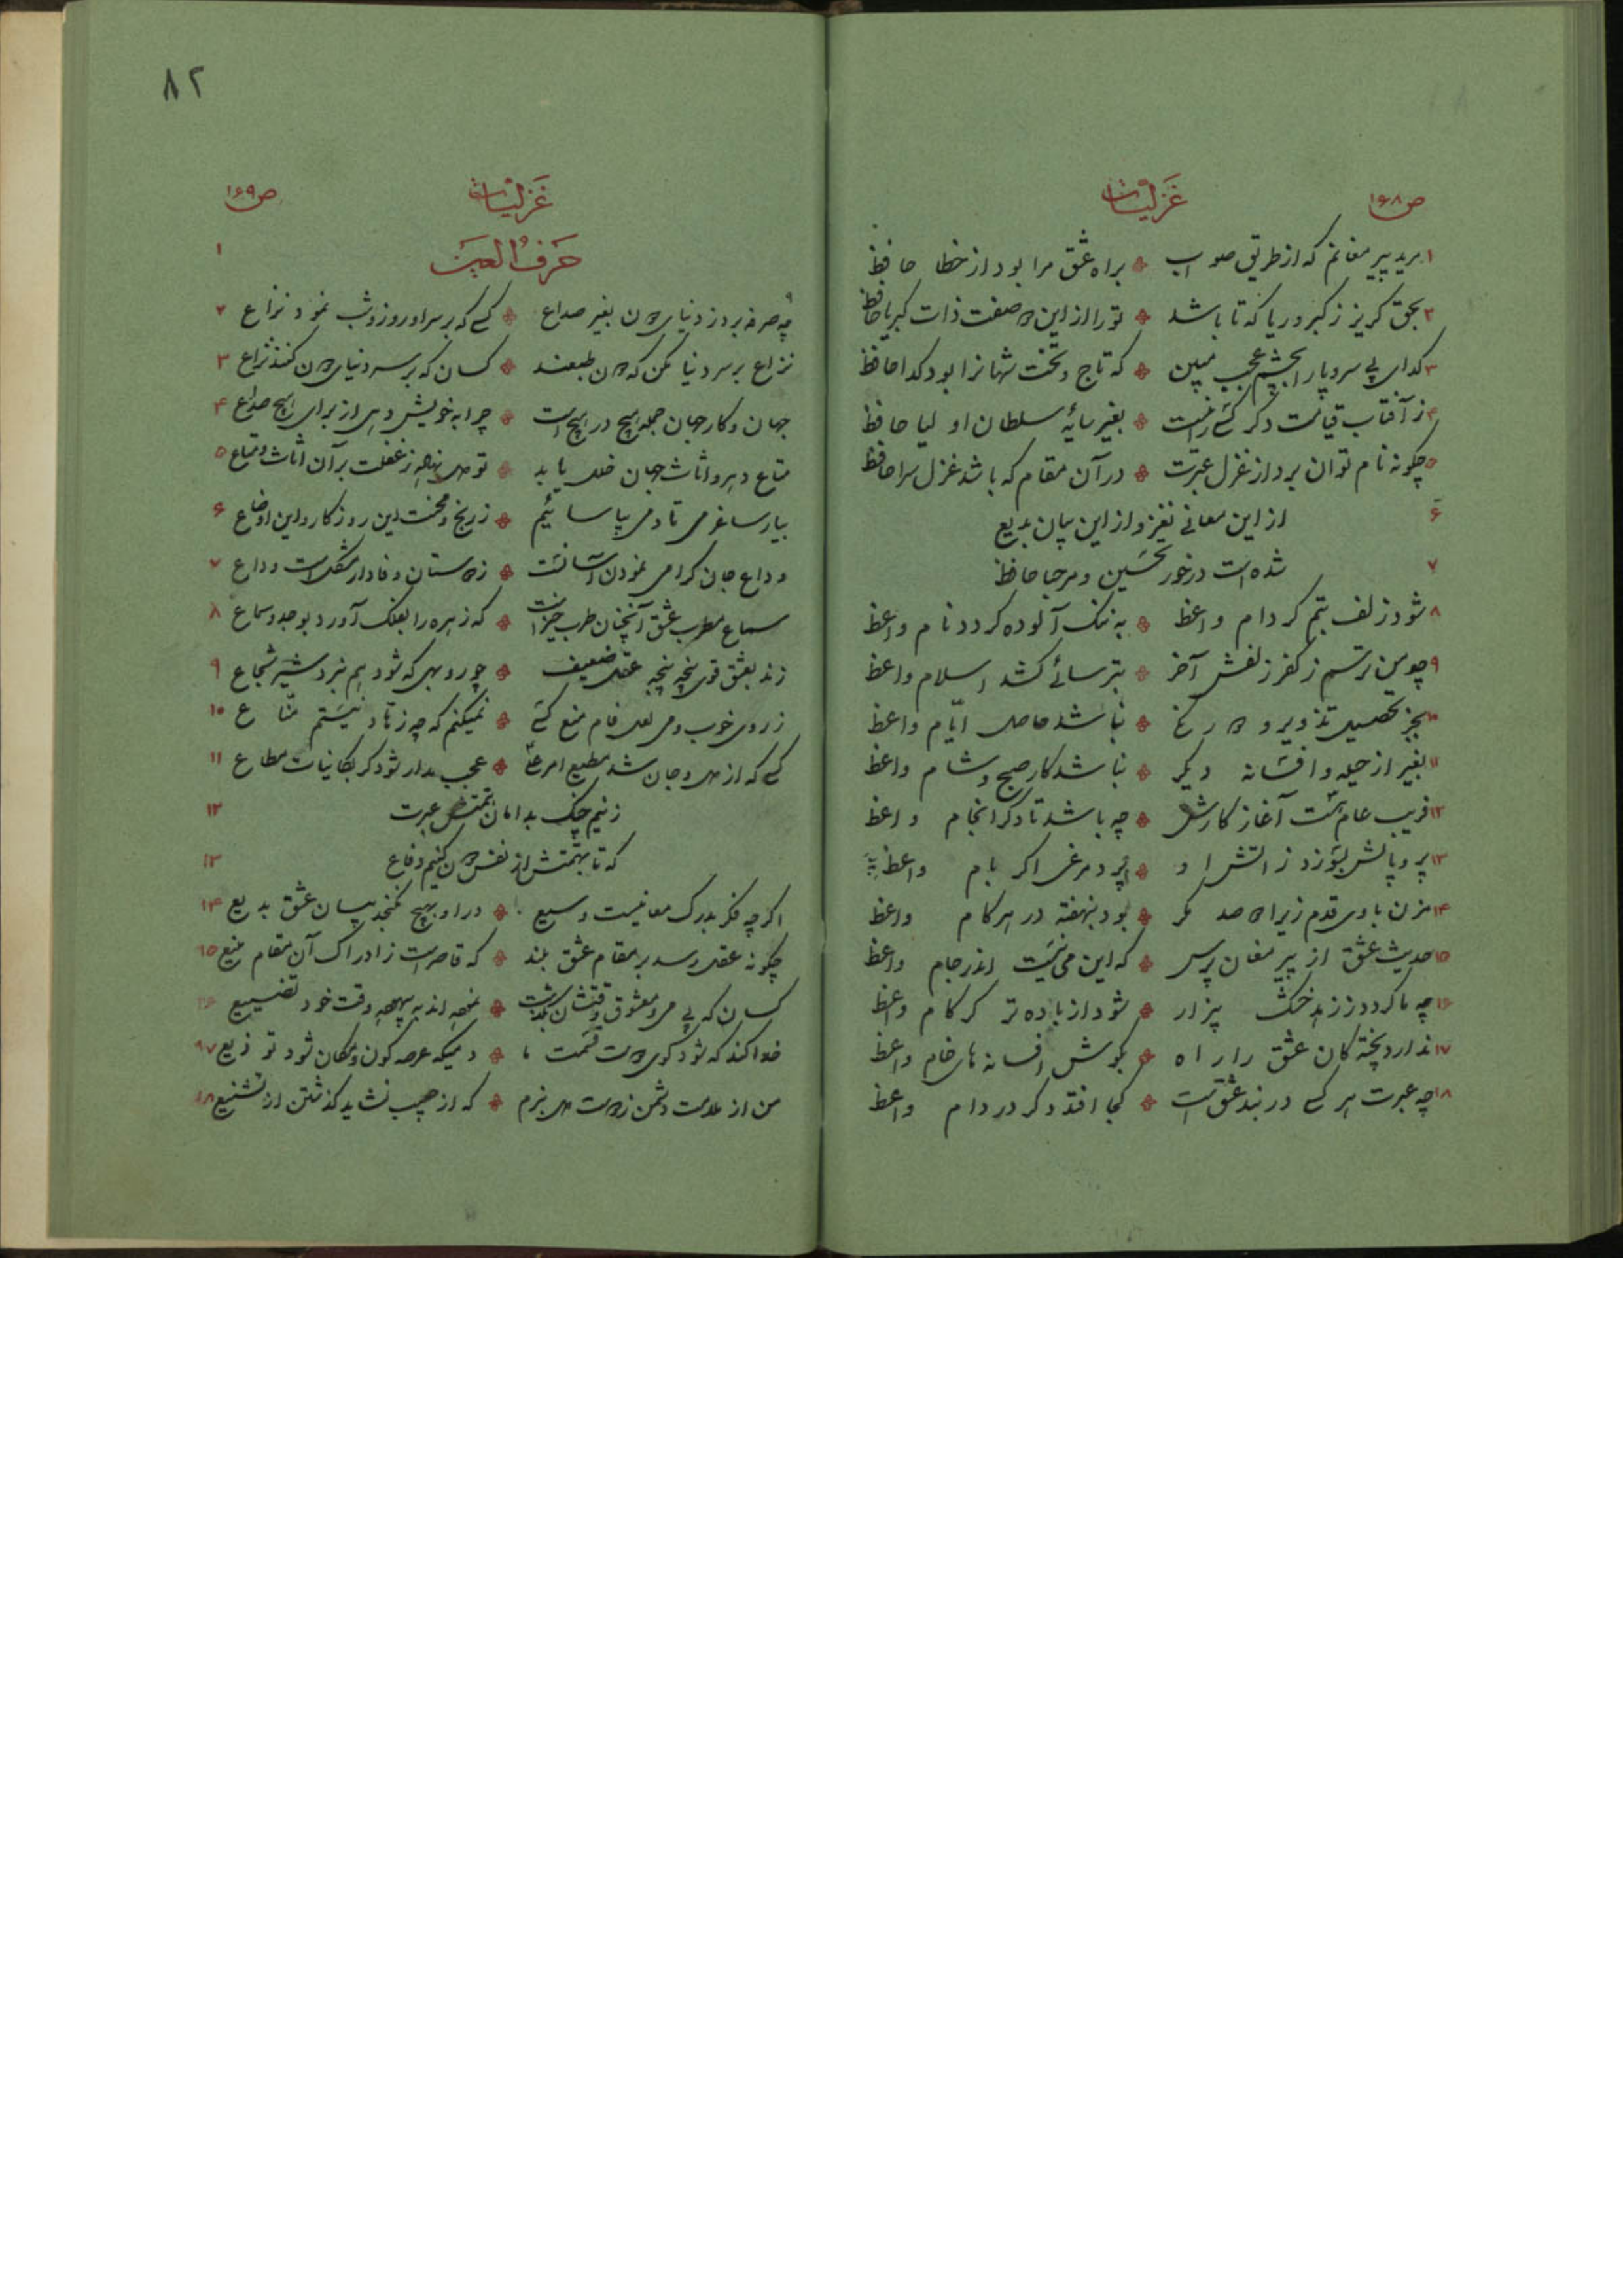 ص۱۶۸ غزلیات
۱ مرید پیر مغانم که از طریق صواب ٭ براه عشق مرا بود از خطا حافظ
۲ بحق کریز ز کبر و ریا که تا باشد ٭ تو را از این دو صفت ذات کبریا حافظ
۳ کدای بی سر و پا را بچشم عجب مبین ٭ که تاج و تخت شهانرا بود کدا حافظ
۴ ز آفتاب قیامت دکر کسی را نیست ٭ بغیر سایهٔ سلطان اولیا حافظ
۵ چکونه نام توان برد از غزل عبرت ٭ در آن مقام که باشد غزل سرا حافظ
۶ از این معانی نغز و از این بیان بدیع
۷ شده است درخور تحسین و مرحبا حافظ
۸ شود زلف بتم کر دام واعظ ٭ به ننک آلوده کردد نام واعظ
۹ چو من ترسم ز کفر زلفش آخر ٭ بترسائی کشد اسلام واعظ
۱۰ بجز تحصیل تذویر و دروغ ٭ نباشد حاصل ایّام واعظ
۱۱ بغیر از حیله و افسانه دیکر ٭ نباشد کار صبح و شام واعظ
۱۲ فریب عام هست آغاز کارش ٭ چه باشد تا دکر انجام واعظ
۱۳ پر و بالش بسوزد ز آتش او ٭ پرد مرغی اکر بام واعظ
۱۴ مزن با وی قدم زیرا دو صد مکر ٭ بود بنهفته در هر کام واعظ
۱۵ حدیث عشق از پیر مغان پرس ٭ که این می نیست اندر جام واعظ
۱۶ چه ما کردد ز زهد خشک بیزار ٭ شود از باده تر کر کام واعظ
۱۷ ندارد پخته کان عشق را راه ٭ بکوش افسانه های خام واعظ
۱۸ چه عبرت هر کسی در بند عشق است ٭ کجا افتد دکر در دام واعظ
۸۲
غزلیات ص۱۶۹
حرف العین ۱
چه صرفه برد ز دنیای دون بغیر صداع ٭ کسی که بر سر او روز و شب نمود نزاع ۲
نزاع بر سر دنیا مکن که دون طبعند ٭ کسان که بر سر دنیای دون کنند نزاع ۳
جهان و کار جهان جمله هیچ در هیچ است ٭ چرا به خویش دهی از برای هیچ صداع ۴
متاع دهر و اثاث جهان خلل یابد ٭ تو دل نهی ز غفلت بر آن اثاث و متاع ۵
بیار ساغر می تا دمی بیاسائیم ٭ ز رنج و محنت این روزکار و این اوضاع ۶
وداع جان کرامی نمودن آسانست ٭ ز دوستان وفادار مشکل است وداع ۷
سماع مطرب عشق آنچنان طرب خیز است ٭ که زهره را بفلک آورد بوجد و سماع ۸
زند بعشق قوی پنجه پنجه عقل ضعیف ٭ چو روبهی که شود هم نبرد شیر شجاع ۹
ز روی خوب و می لعل فام منع کسی ٭ نمیکنم که چه زهّاد نیستم منّاع ۱۰
کسی که از دل و جان شد مطیع امر علی ٭ عجب مدار شود کر بکاینات مطاع ۱۱
زنیم چنک بدامان همتش عبرت ۱۲
که تا بهمّتش از نفس دون کنیم دفاع ۱۳
اکر چه فکر بدرک معانیست وسیع ٭ در او بهیچ نکنجد بیان عشق بدیع ۱۴
چکونه عقل رسد بر مقام عشق بلند ٭ که قاصر است ز ادراک آن مقام منیع ۱۵
کسان که بی می و معشوق وقتشان بگذشت ٭ نموده اند به بیهوده وقت خود تضییع ۱۶
خدا کند که شود کوی دوست قسمت ما ٭ دمیکه عرصه کون و مکان شود توزیع ۱۷
من از ملامت دشمن ز دوست دل نبرم ٭ که از حبیب نشاید کذشتن از تشنیع ۱۸